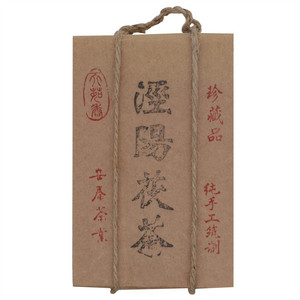 珍藏品
純手工筑制
涇陽茯茶
安泰茶業